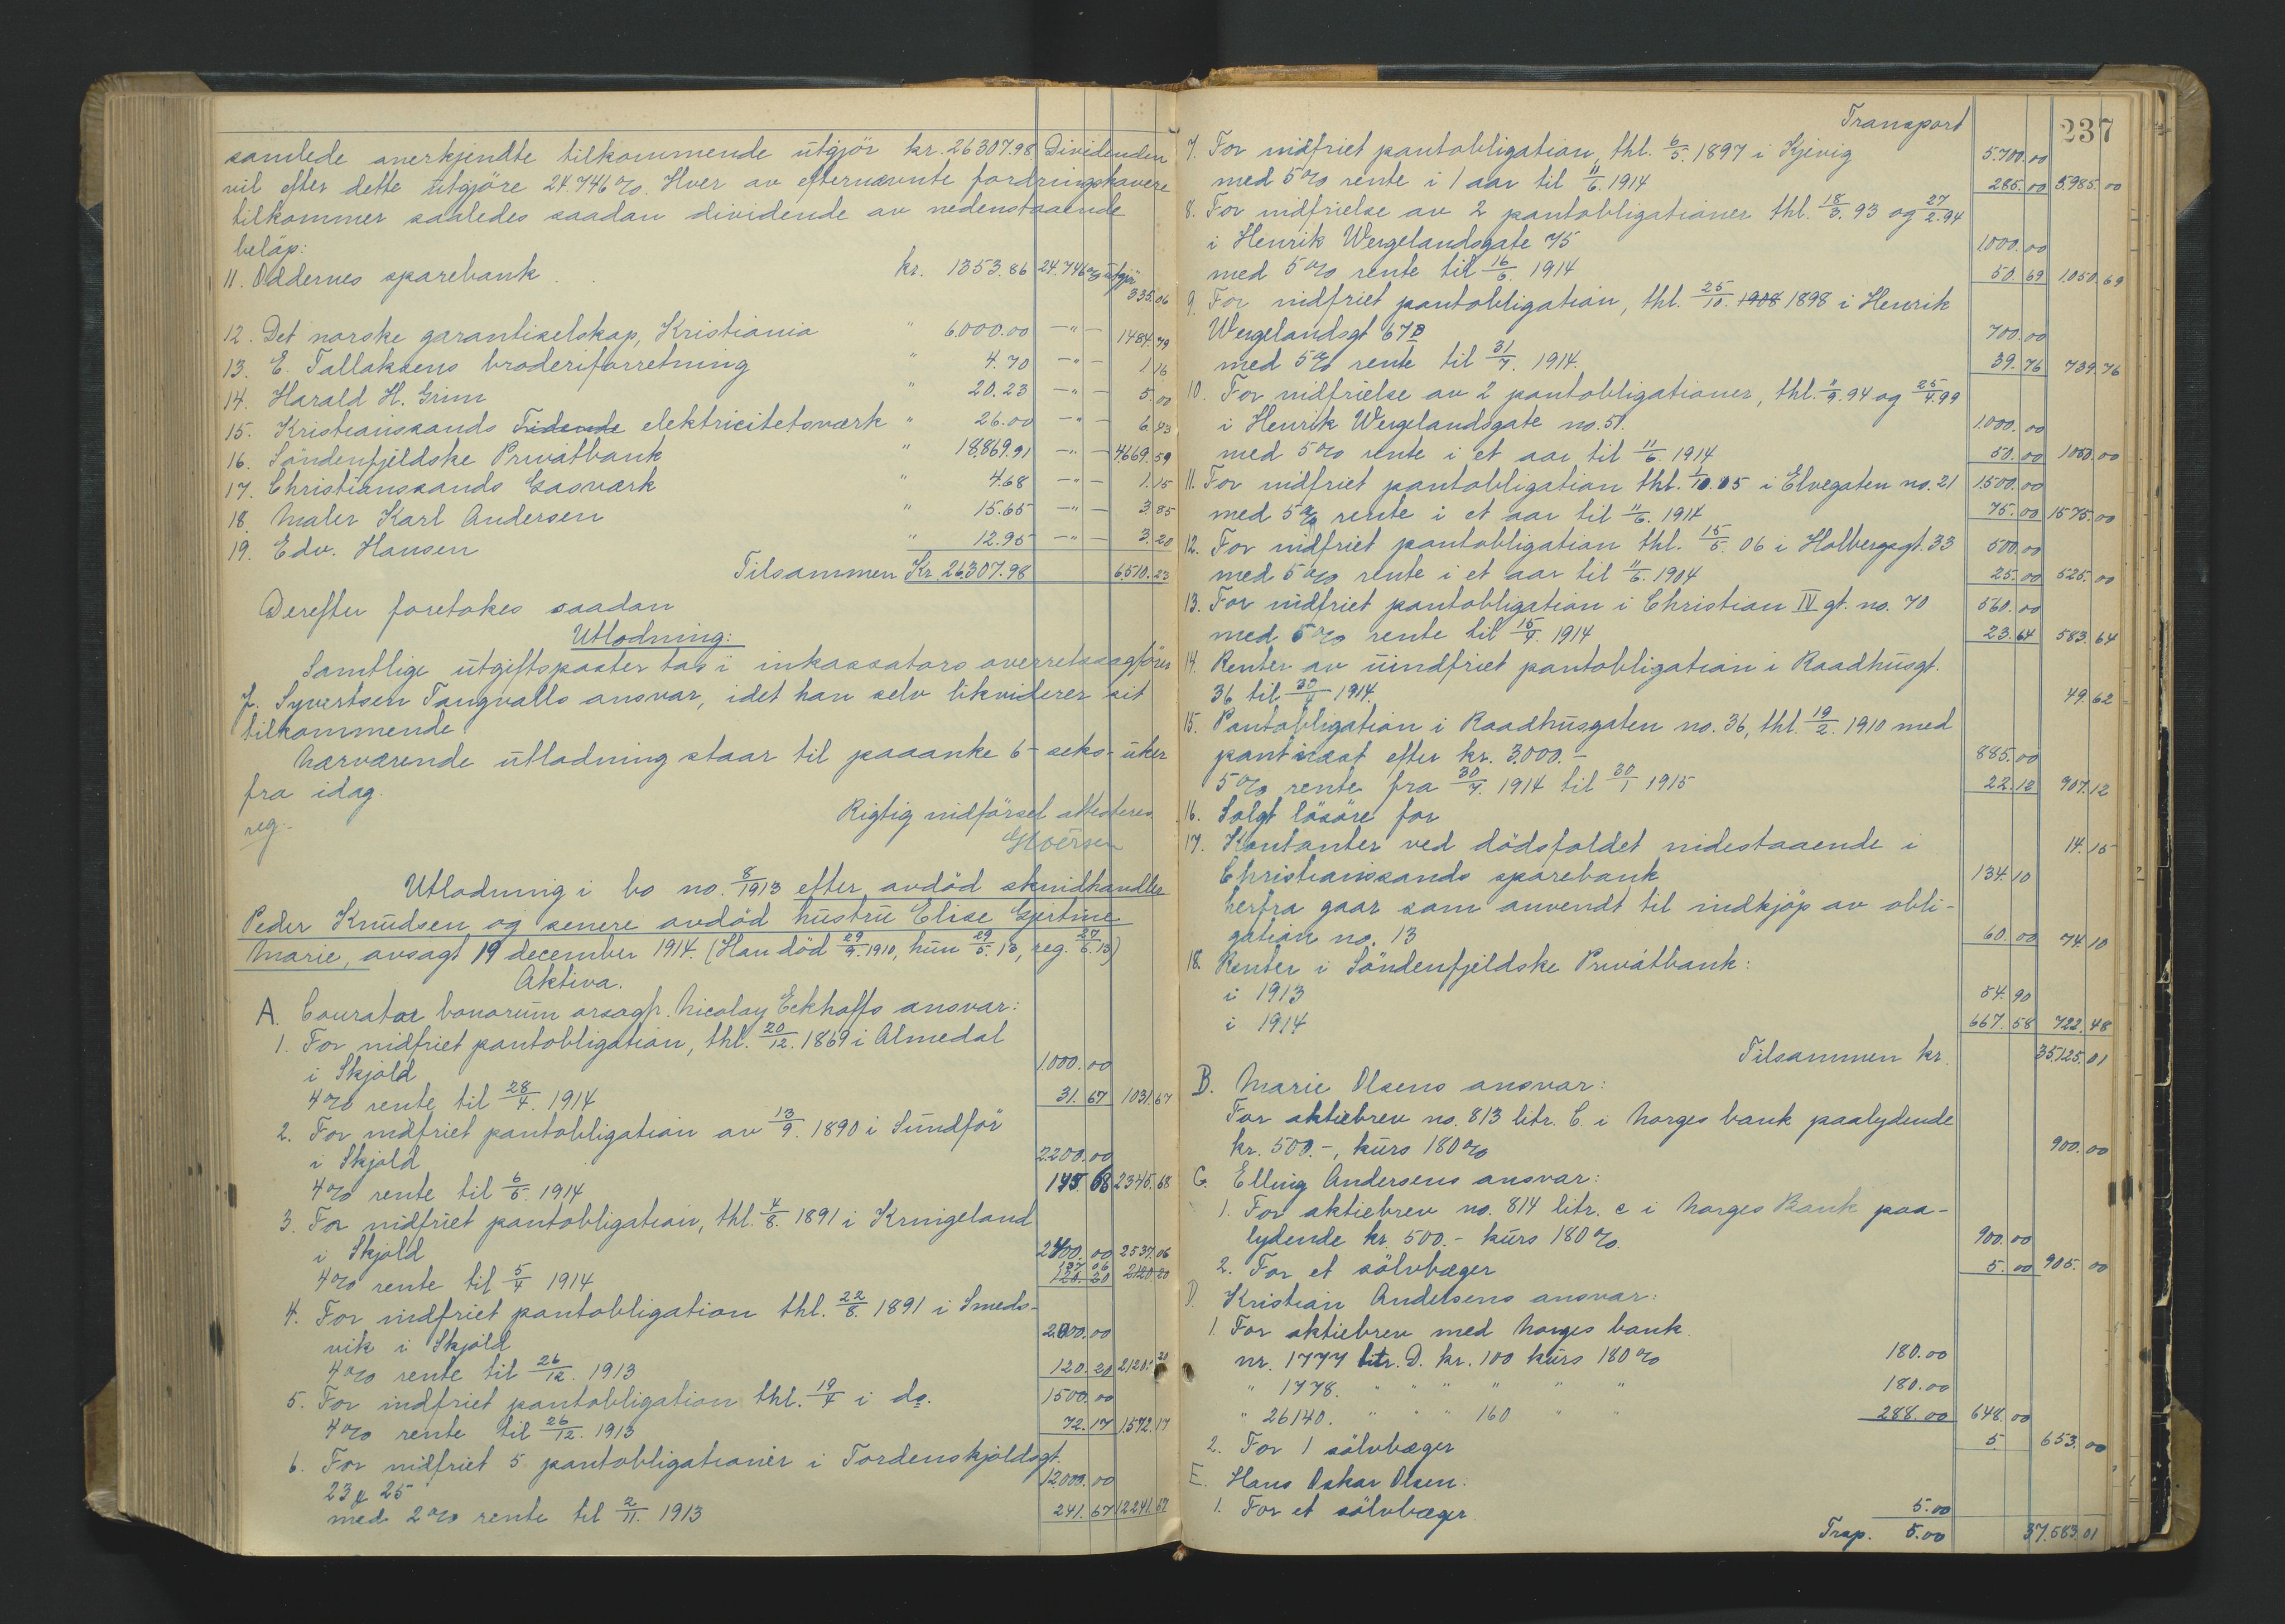 samlede anerkjendte tilkommende utgjör kr. 26307.98. Dividenden
vil efter dette utgjöre 24.746%. Hver av efternævnte fordringshavere
tilkommer saaledes saadan dividende av nedenstaaende
beløp:
11. Oddernes sparebank kr. 1353.86 24.746% utgjör 335.06
12. Det norske garantiselskap, Kristiania " 6000.00 —"— 1484.79
13. E. Tallaksens broderiforretning " 4.70 —"— 1.16
14. Harald H. Grim " 20.23 —"— 5.00
15. Kristianssands Tidende elektricitetsværk " 26.00 —"— 6.43
16. Söndenfjeldske Privatbank " 18,869.91 —"— 4669.59
17. Christianssands Gasværk " 4.68 —"— 1.15
18. Maler Karl Andersen " 15.65 —"— 3.85
19. Edv. Hansen " 12.95 —"— 3.20
Tilsammen Kr. 26307.98 6510.23
Derefter foretokes saadan
Utlodning:
Samtlige utgiftsposter tas i inkassators overretssagförer
J. Syvertsen Tangvalls ansvar, idet han selv likviderer sit
tilkommende.
Nærværende utlodning staar til paaanke 6 - seks - uker
fra idag.
Rigtig indförsel attesteres
reg.-
Utlodning i bo no. 8/1913 efter avdöd skindhandler
Peder Knudsen og senere avdöd hustru Elise Gjertine
Marie, avsagt 19 december 1914. (Han död 29/9. 1910, hun 29/5. 13, reg. 27/6. 13)
Aktiva.
A. Courator bonorum orsagf. Nicolay Eckhoffs ansvar:
1. For indfriet pantobligation, thl. 20/12. 1869 i Almedal
i Skjold 1000.00
4% rente til 28/4. 1914 31.67 1031.67
2. For indfriet pantobligation av 13/9. 1890 i Sundför
i Skjold 2200.00
4% rente til 6/5. 1914 145.68 2345.68
3. For indfriet pantobligation, thl. 4/8. 1891 i Kringeland
i Skjold 2400.00 2537.06
4% rente til 5/4 1914 137.06 120.20 2120.20
4. For indfriet pantobligation thl. 22/8. 1891 i Smeds-
vik i Skjold 2000.00
4% rente til 26/12. 1913 120.20 2120.20
5. For indfriet pantobligation thl. 19/4 i do. 1500.00
4% rente til 26/12. 1913 72.17 1572.17
6. For indfriet 5 pantobligationer i Tordenskjoldsgt.
23 & 25 12000.00
med 2% rente til 2/11. 1913 241.67 12241.67
237
Transport
7. For indfriet pantobligation, thl. 6/5. 1897 i Kjevig 5700.00
med 5% rente i 1 aar til 11/6. 1914 285.00 5985.00
8. For indfrielse av 2 pantobligationer thl. 18/3. 93 og 27/2. 94
i Henrik Wergelandsgate 75 1000.00
med 5% rente til 16/6. 1914 50.69 1050.69
9. For indfriet pantobligation, thl. 25/10. 1908 1898 i Henrik
Wergelandsgt 67B 700.00
med 5% rente til 31/7. 1914. 39.76 739.76
10. For indfrielse av 2 pantobligationer, thl. 11/9. 94 og 25/4. 99
i Henrik Wergelandsgate no. 51. 1000.00
med 5% rente i et aar til 11/6. 1914 50.00 1050.00
11. For indfriet pantobligation thl. 1/10. 05 i Elvegaten no. 21 1500.00
med 5% rente i et aar til 11/6. 1914 75.00 1575.00
12. For indfriet pantobligation thl. 15/5. 06 i Holbergsgt. 33 500.00
med 5% rente i et aar til 11/6. 1904 25.00 525.00
13. For indfriet pantobligation i Christian IV gt. no. 70 560.00
med 5% rente til 15/4. 1914 23.64 583.64
14. Renter av uindfriet pantobligation i Raadhusgt.
36 til 30/4 1914. 49.62
15. Pantobligation i Raadhusgaten no. 36, thl. 19/2. 1910 med
panticaat efter kr. 3.000.- 885.00
5% rente fra 30/7. 1914 til 30/1 1915 22.12 907.12
16. Solgt lösöre for 14.15
17. Kontanter ved dödsfaldet indestaaende i
Christianssands sparebank 134.10
herfra gaar som anvendt til indkjöp av obli-
gation no. 13 60.00 74.10
18. Renter i Söndenfjeldske Privatbank:
i 1913 54.90
i 1914 667.58 722.48
Tilsammen kr. 35125.01
B. Marie Olsens ansvar:
For aktiebrev no. 813 litr. C. i Norges bank paalydende
kr. 500.-, kurs 180% 900.00
C. Elling Andersens ansvar:
1. For aktiebrev no. 814 litr. c i Norges Bank paa-
lydende kr. 500.- kurs 180%. 900.00
2. For et sölvbæger 5.00 905.00
D. Kristian Andersens ansvar:
1. For aktiebrev med Norges bank.
nr. 1777 litr. D. kr. 100 kurs 180% 180.00
" 1778. " " " " " " 180.00
" 26140. " " " 160 " " 288.00 648.00
2. For 1 sölvbæger 5 653.00
E. Hans Oskar Olsen.
1. For et sölvbæger 5.00
Trsp. 5.00 37.583.01